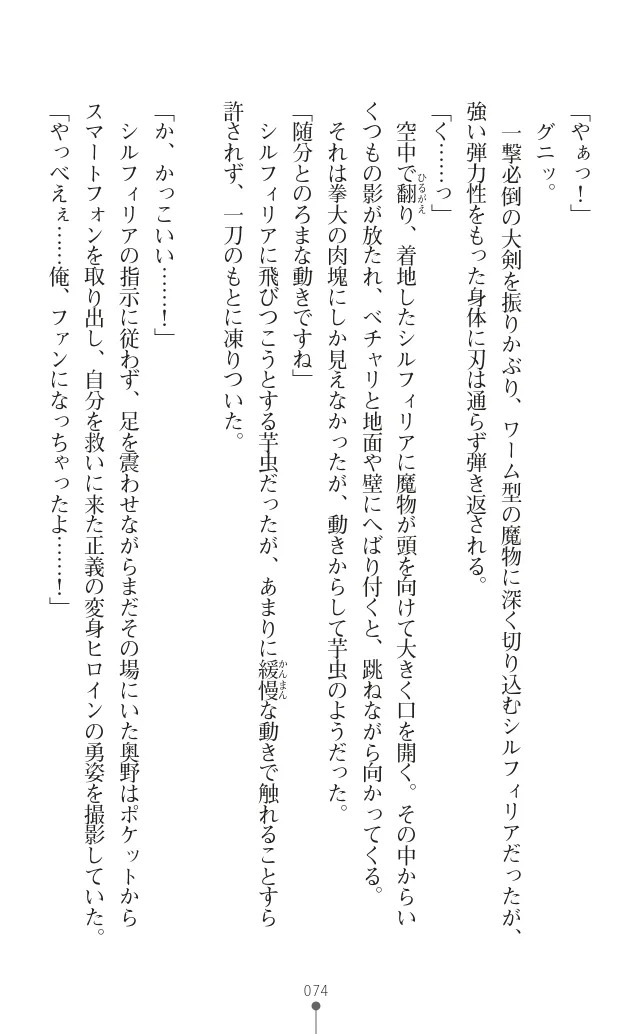 「やぁっ！」
グニッ。
一撃必倒の大剣を振りかぶり、ワーム型の魔物に深く切り込むシルフィリアだったが、
強い弾力性をもった身体に刃は通らず弾き返される。
「く……っ」
空中で翻り、着地したシルフィリアに魔物が頭を向けて大きく口を開く。その中からい
くつもの影が放たれ、ベチャリと地面や壁にへばり付くと、跳ねながら向かってくる。
それは拳大の肉塊にしか見えなかったが、動きからして芋虫のようだった。
「随分とのろまな動きですね」
シルフィリアに飛びつこうとする芋虫だったが、あまりに緩慢な動きで触れることすら
許されず、一刀のもとに凍りついた。
「か、かっこいい……！」
シルフィリアの指示に従わず、足を震わせながらまだその場にいた奥野はポケットから
スマートフォンを取り出し、自分を救いに来た正義の変身ヒロインの勇姿を撮影していた。
「やっべえぇ……俺、ファンになっちゃったよ……！」
ひるがえ
かんまん
074